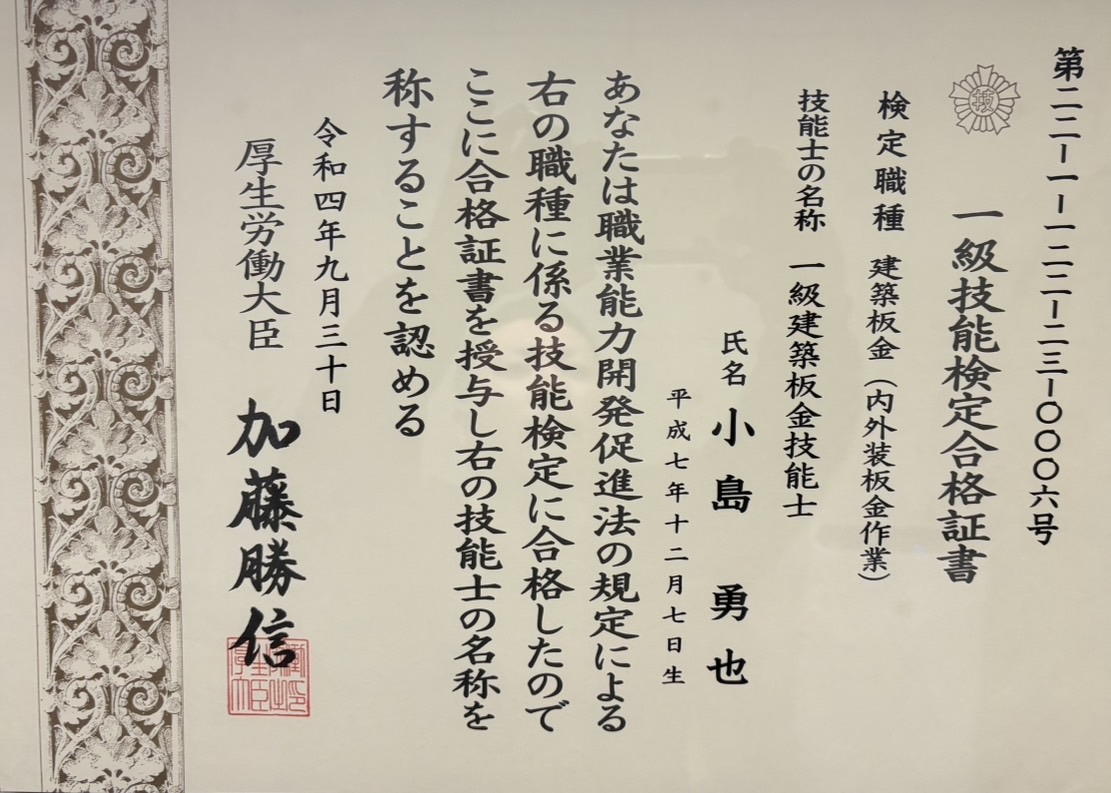 第二二二ー一ー一二二ー二三ー〇〇〇六号
技
一級技能検定合格証書
検定職種 建築板金（内外装板金作業）
技能士の名称 一級建築板金技能士
氏名 小島 勇也
平成七年十二月七日生
あなたは職業能力開発促進法の規定による
右の職種に係る技能検定に合格したので
ここに合格証書を授与し右の技能士の名称を
称することを認める
令和四年九月三十日
厚生労働大臣 加藤勝信